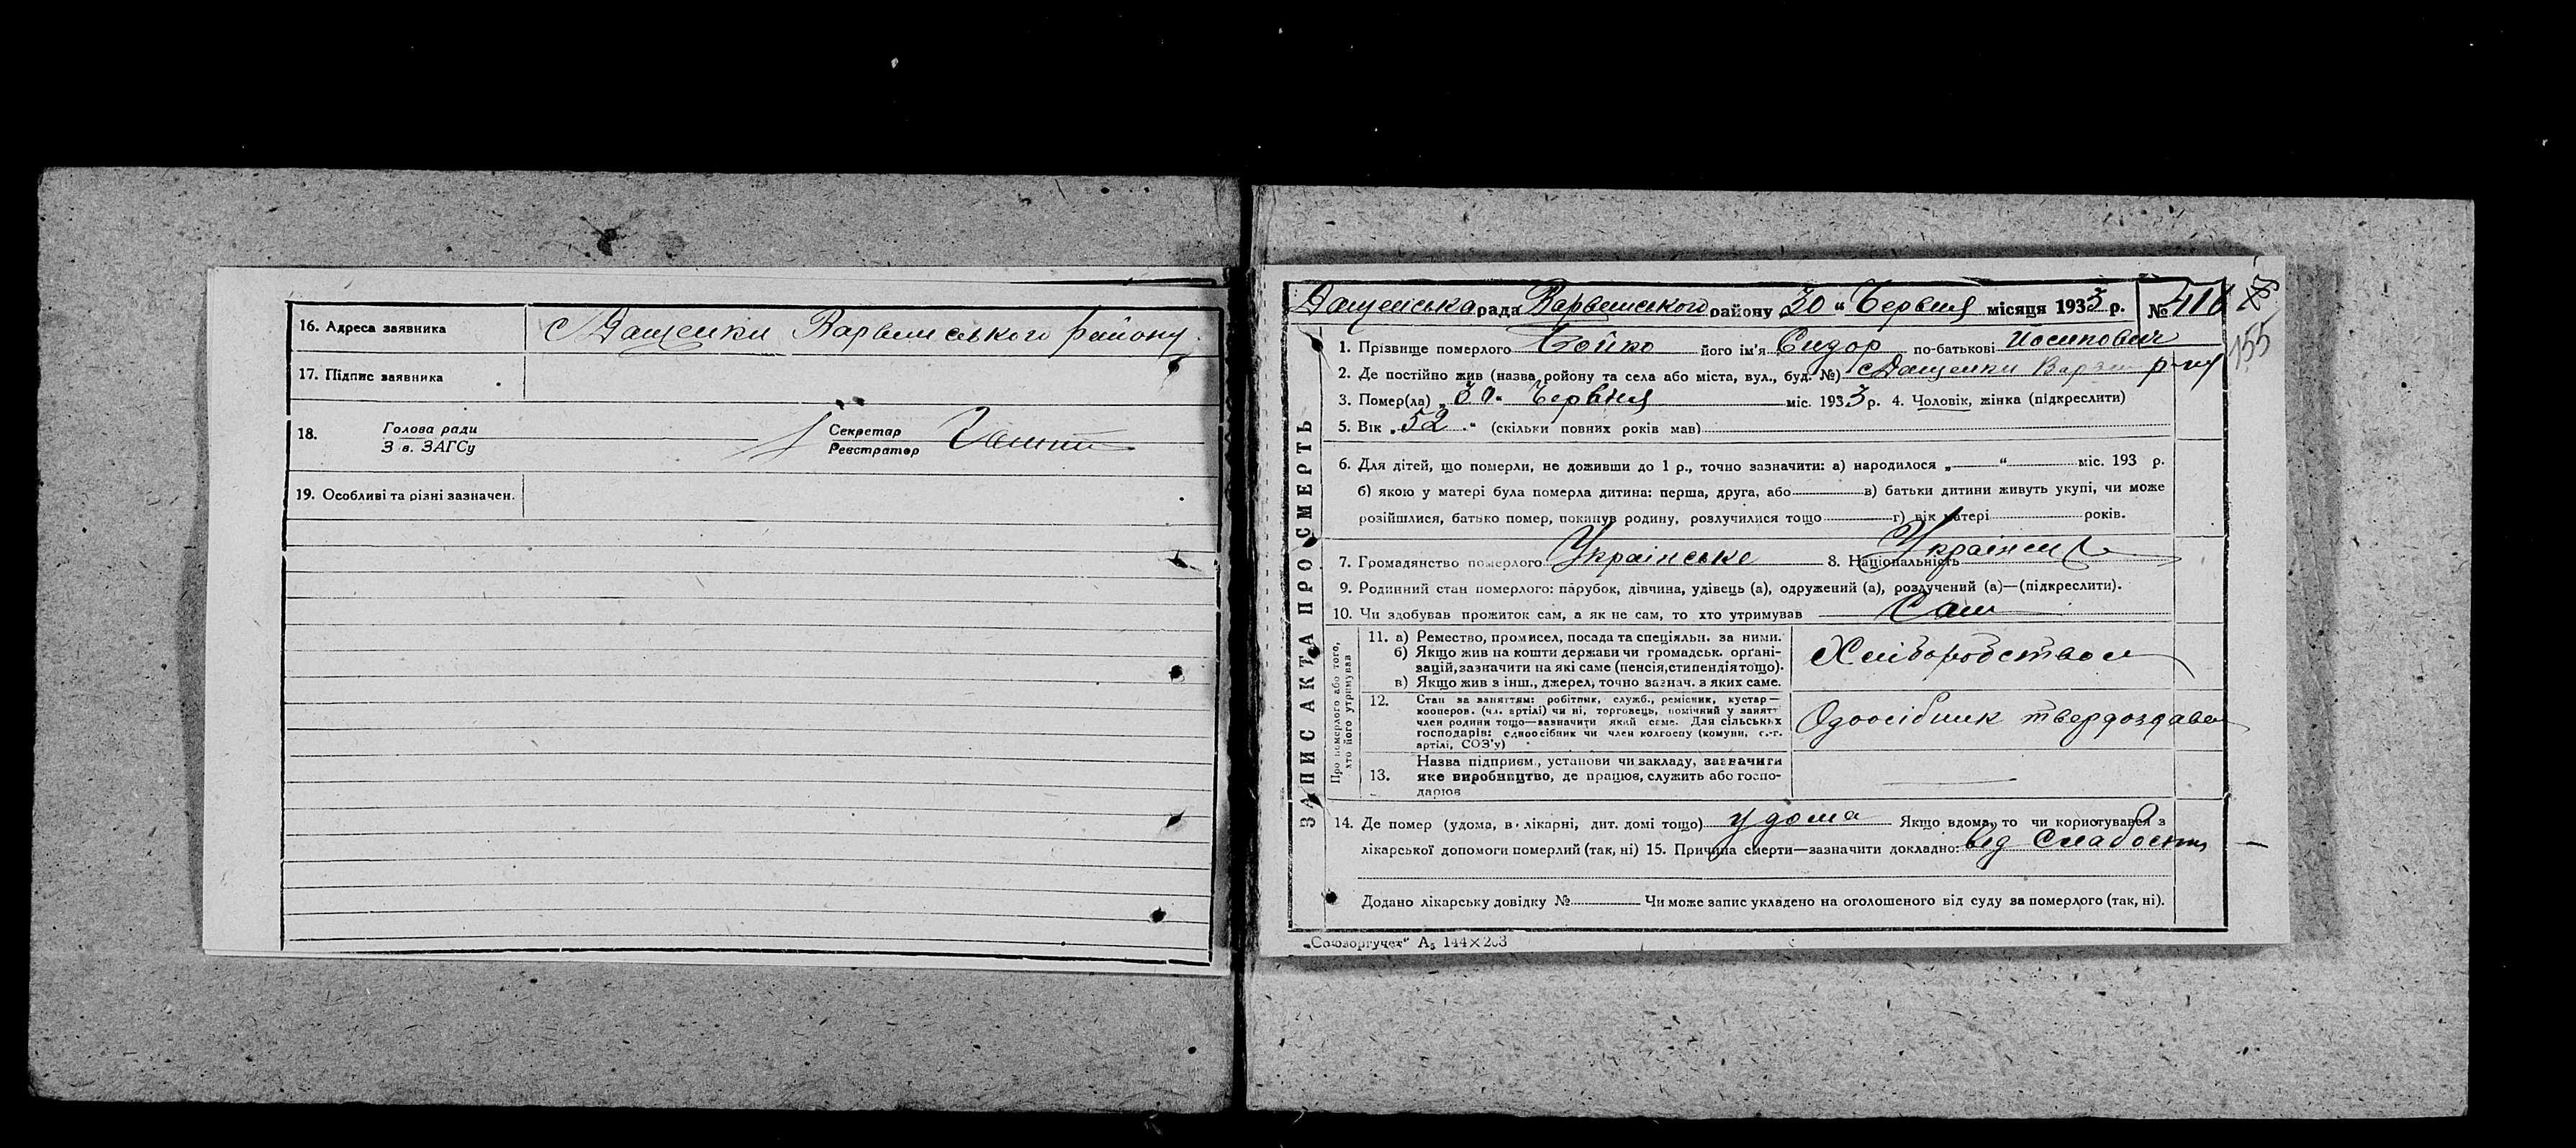 16. Адреса заявника с Дащенки Варвинського району
17. Підпис заявника
18. Голова ради Секретар
Зав. ЗАГСу Реєстратор
19. Особливі та різні зазначен.
Дащенська рада Варвенського району 30 " Червня місяця 1933 р. №
155
ЗАПИС АКТА ПРО СМЕРТЬ
1. Прізвище померлого Бойко його ім'я Сидор по-батькові Йосипович
2. Де постійно жив (назва ройону та села або міста, вул., буд. №) с Дащенки Варвин р-ну
3. Помер(ла) „ 30 " Червня міс. 1933 р. 4. Чоловік, жінка (підкреслити)
5. Вік „ 52 " (скільки повних років мав)
6. Для дітей, що померли, не доживши до 1 р., точно зазначити: а) народилося „ “ міс. 193 р.
б) якою у матері була померла дитина: перша, друга, або в) батьки дитини живуть укупі, чи може
розійшлися, батько помер, покинув родину, розлучилися тощо г) вік матері років.
7. Громадянство померлого Українське 8. Національність Українець
9. Родинний стан померлого: парубок, дівчина, удівець (а), одружений (а), розлучений (а)—(підкреслити).
10. Чи здобував прожиток сам, а як не сам, то хто утримував Сам
Про померлого або того,
хто його утримував
11. а) Ремество, промисел, посада та спеціяльн. за ними.
б) Якщо жив на кошти держави чи громадськ. органі-
зацій, зазначити на які саме (пенсія, стипендія тощо).
в) Якщо жив з інш., джерел, точно зазнач. з яких саме.
Хліборобством
12. Стан за заняттям: робітник, служб., ремісник, кустар—
кооперов. (чл. артілі) чи ні, торговець, помічний у занятт
член родини тощо—зазначити який саме. Для сільських
господарів: одноосібник чи член колгоспу (комуни, с.-г.
артілі, СОЗ'у)
Одоосібник твердоздавец
13. Назва підприєм., установи чи закладу, зазначити
яке виробництво, де працює, служить або госпо-
дарює
14. Де помер (удома, в лікарні, дит. домі тощо) у дома Якщо вдома, то чи користувався з
лікарської допомоги померлий (так, ні) 15. Причина смерти—зазначити докладно: від слабости
Додано лікарську довідку № Чи може запис укладено на оголошеного від суду за померлого (так, ні).
„Союзоргучет“ А₅ 144×203